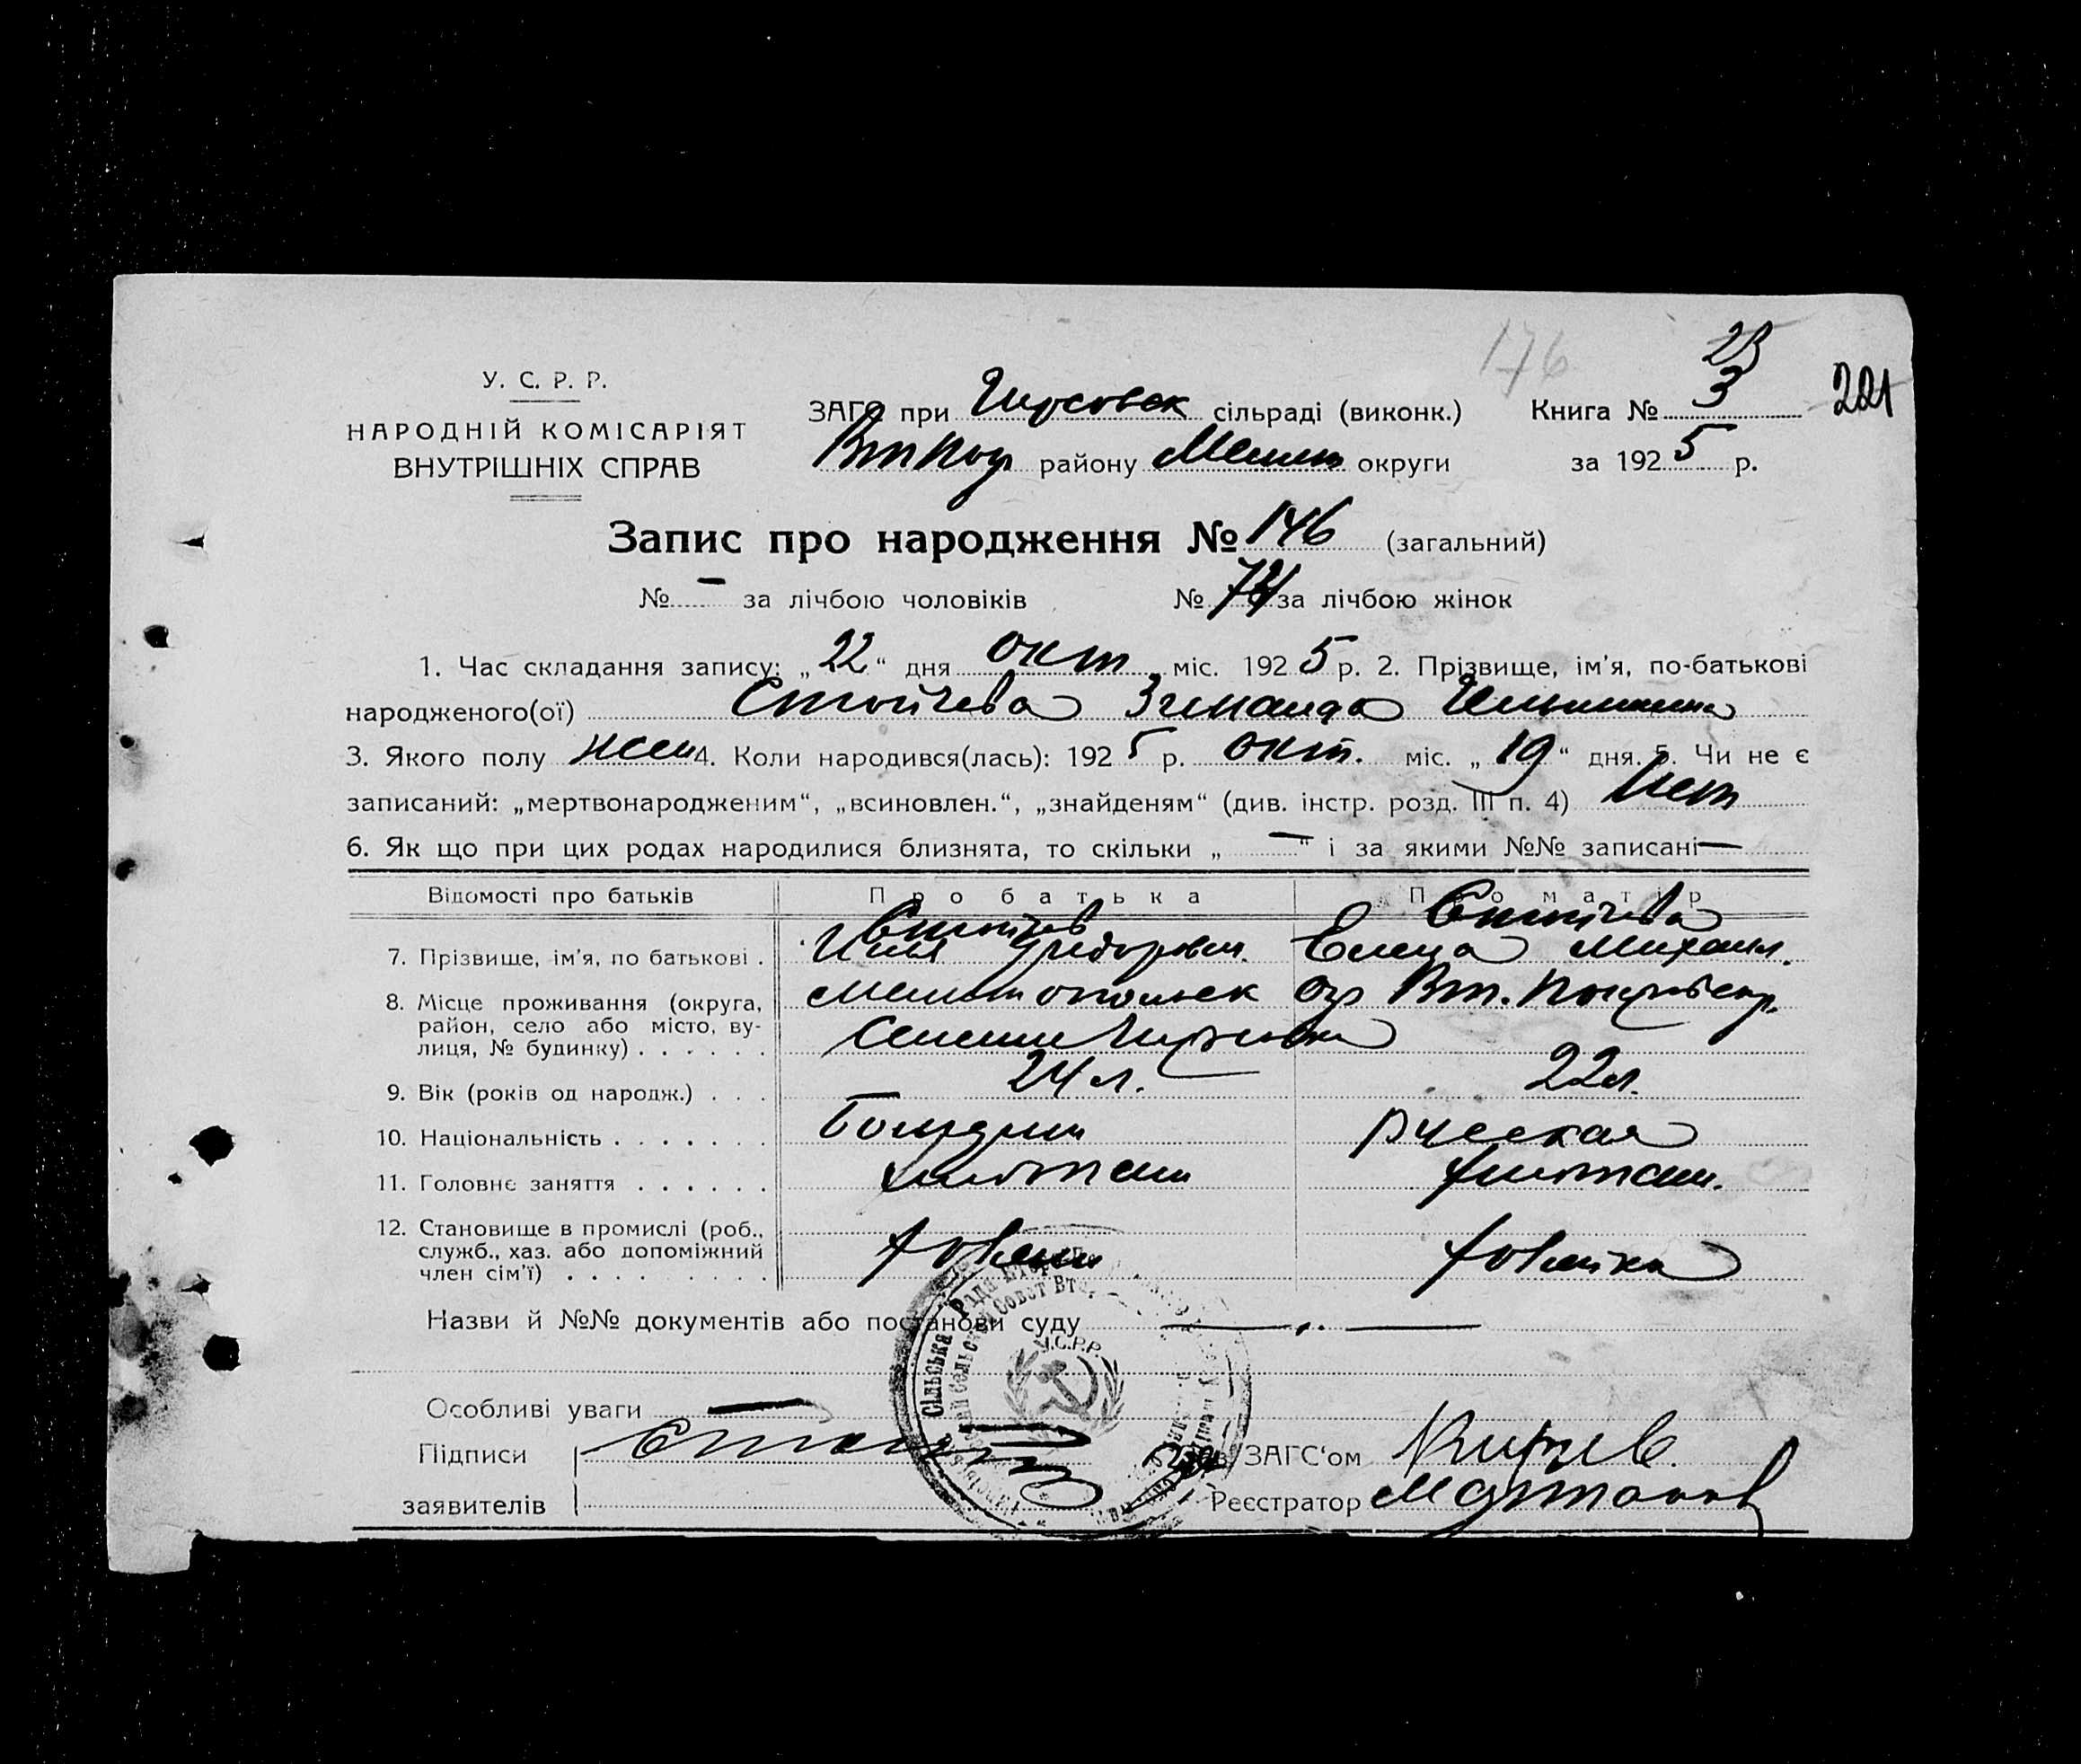 176
23
У. С. Р. Р.
НАРОДНІЙ КОМІСАРІЯТ
ВНУТРІШНІХ СПРАВ
ЗАГС при Гирсовск сільраді (виконк.) Книга № 3 221
району Мелит округи за 1925 р.
Запис про народження № 146 (загальний)
№ — за лічбою чоловіків № 74 за лічбою жінок
1. Час складання запису: „22“ дня окт міс. 1925 р. 2. Прізвище, ім'я, по-батькові
народженого(ої) Стойчева Зинаида Ильинична
3. Якого полу жен 4. Коли народився(лась): 1925 р. окт. міс. „19“ дня. 5. Чи не є
записаний: „мертвонародженим“, „всиновлен.“, „знайденям“ (див. інстр. розд. III п. 4) Нет
6. Як що при цих родах народилися близнята, то скільки „—“ і за якими №№ записані —
Відомості про батьків Про батька Про матір
Стойчев Стойчева
7. Прізвище, ім'я, по батькові . Илья Григорьев. Елена Михаил.
8. Місце проживання (округа, район, село або місто, вулиця, № будинку) . . . . . . Мелитопольск
9. Вік (років од народж.) . . . 24 л. 22 л.
10. Національність . . . . . . . Болгарин русская
11. Головнє заняття . . . . . . хлебопаш хлебопаш.
12. Становище в промислі (роб., служб., хаз. або допоміжний член сім'ї) . . . . . . . . . хозяин хозяйка
Назви й №№ документів або постанови суду —
Особливі уваги —
Підписи
заявителів
Зав. ЗАГС'ом
Реєстратор
У.С.Р.Р.
Сільська Рада